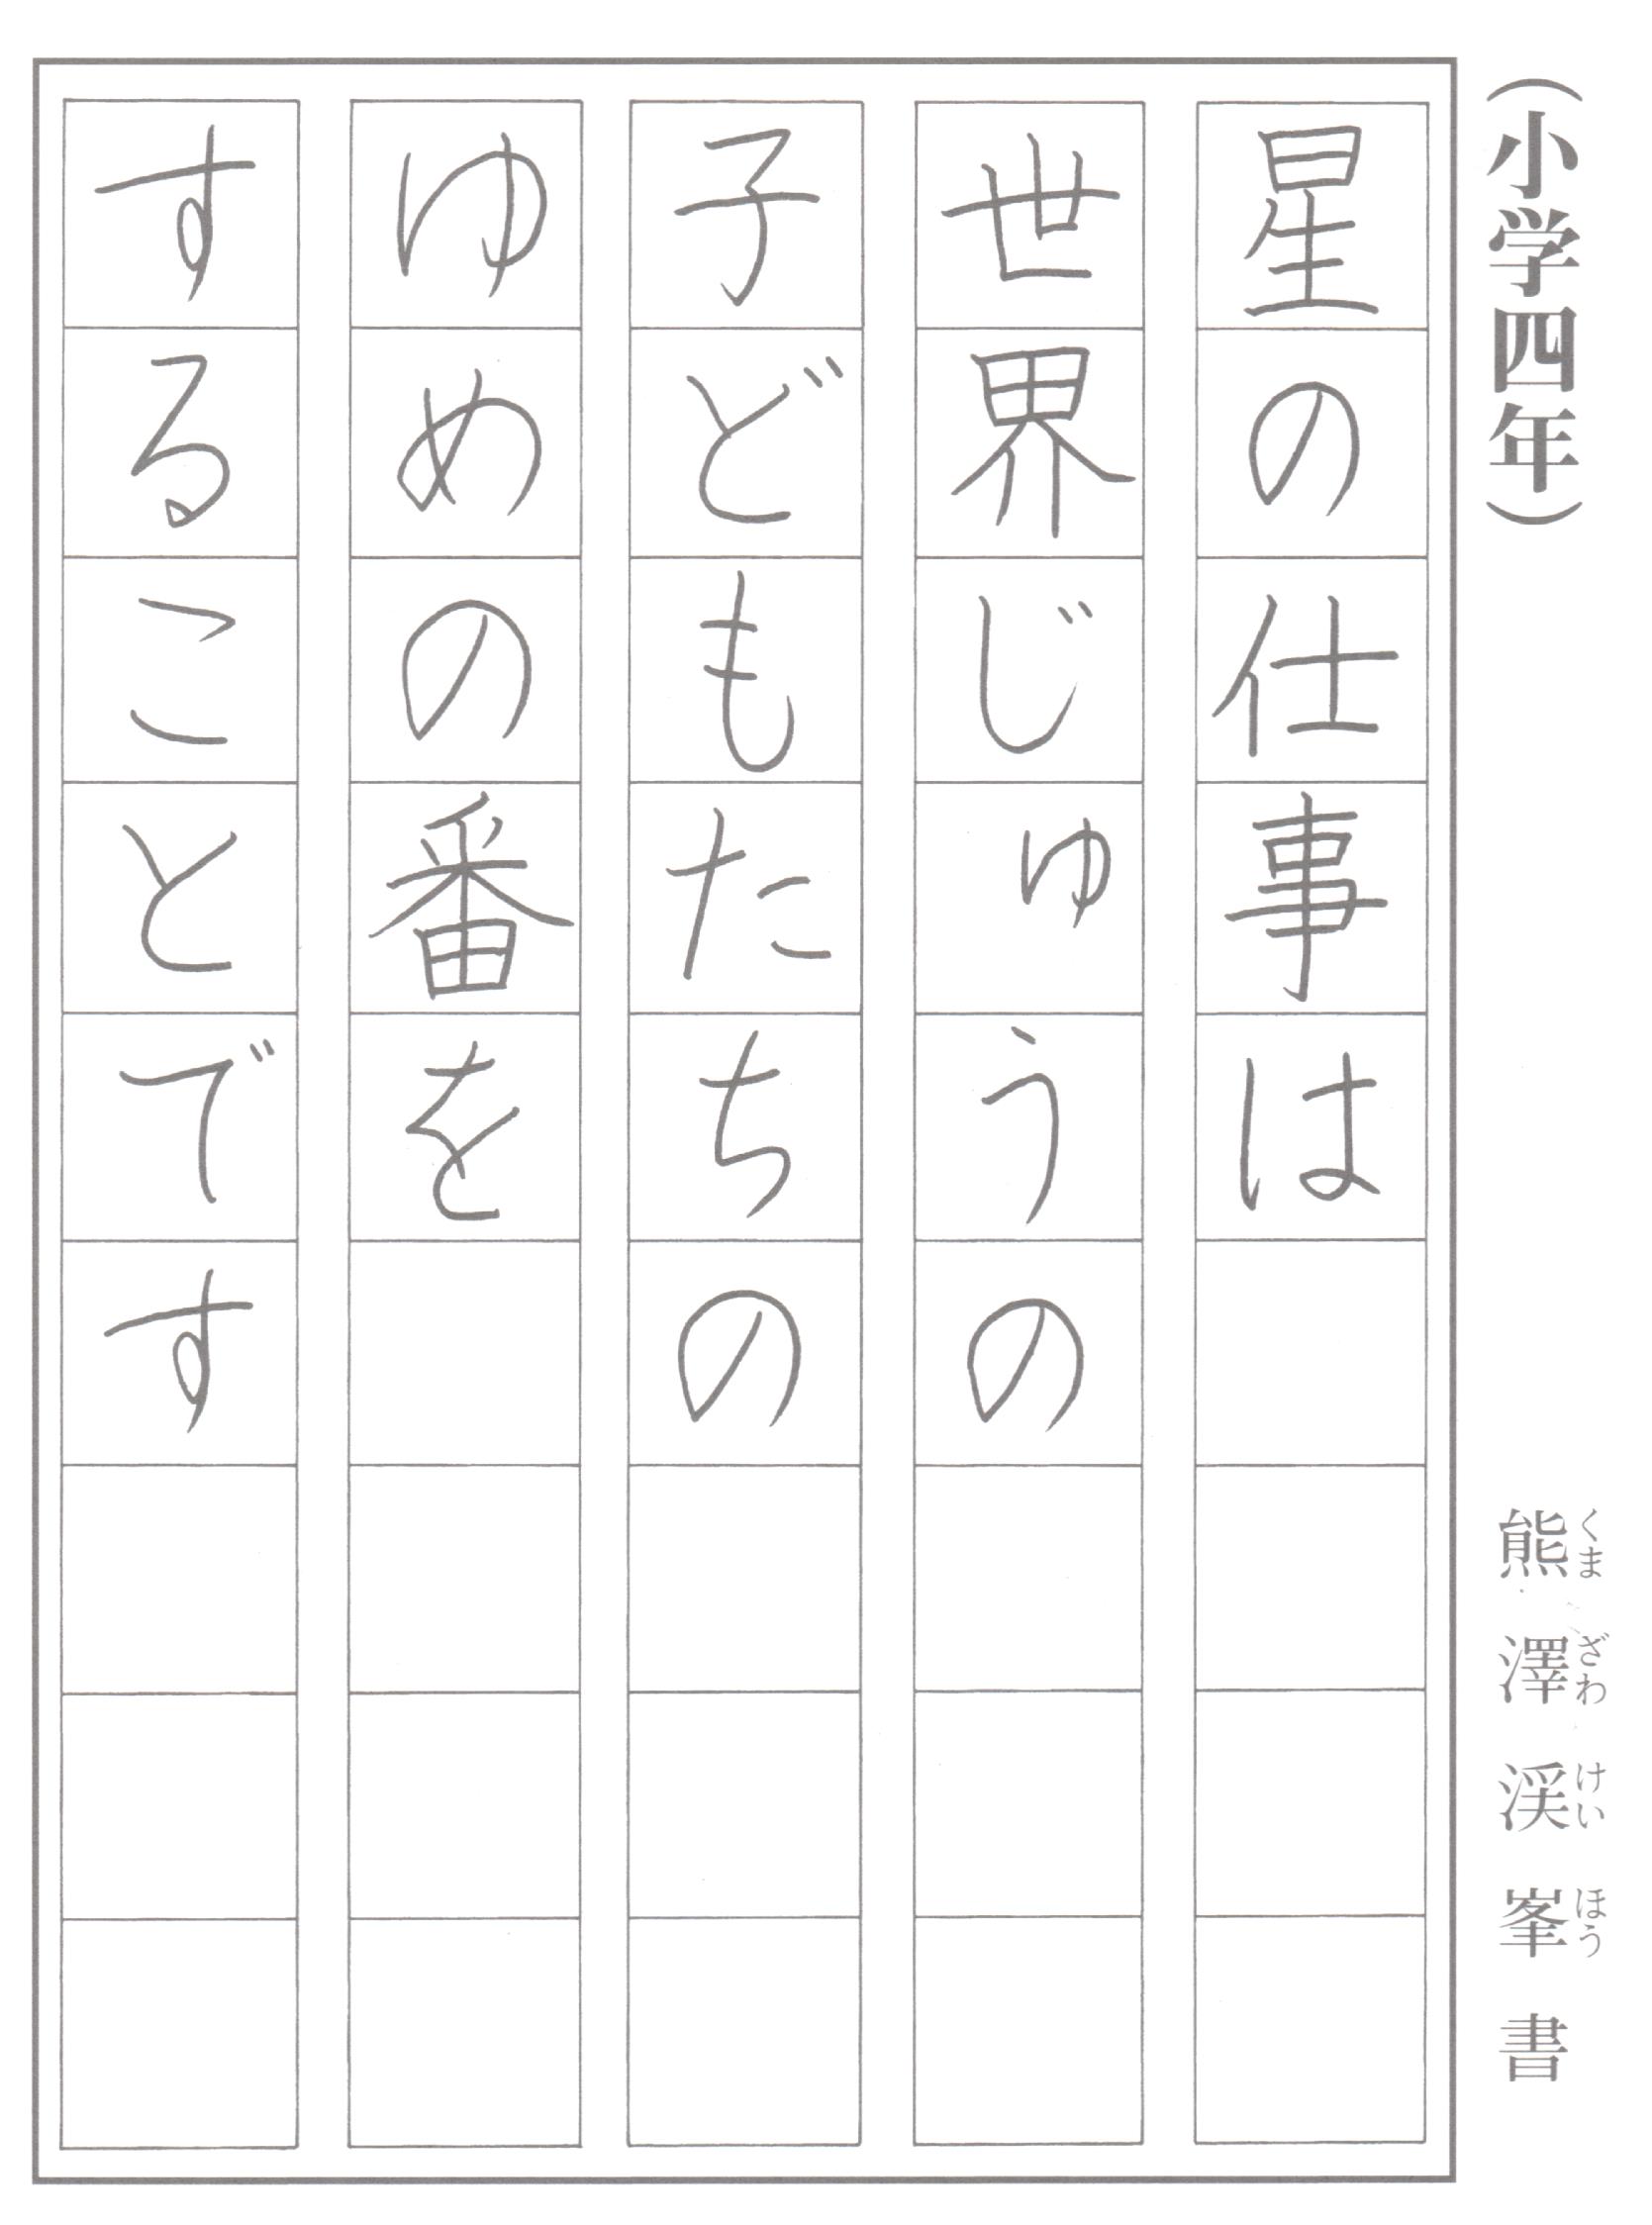 （小学四年）
熊澤渓峯書
くまざわけいほう
星の仕事は
世界じゅうの
子どもたちの
ゆめの番を
することです